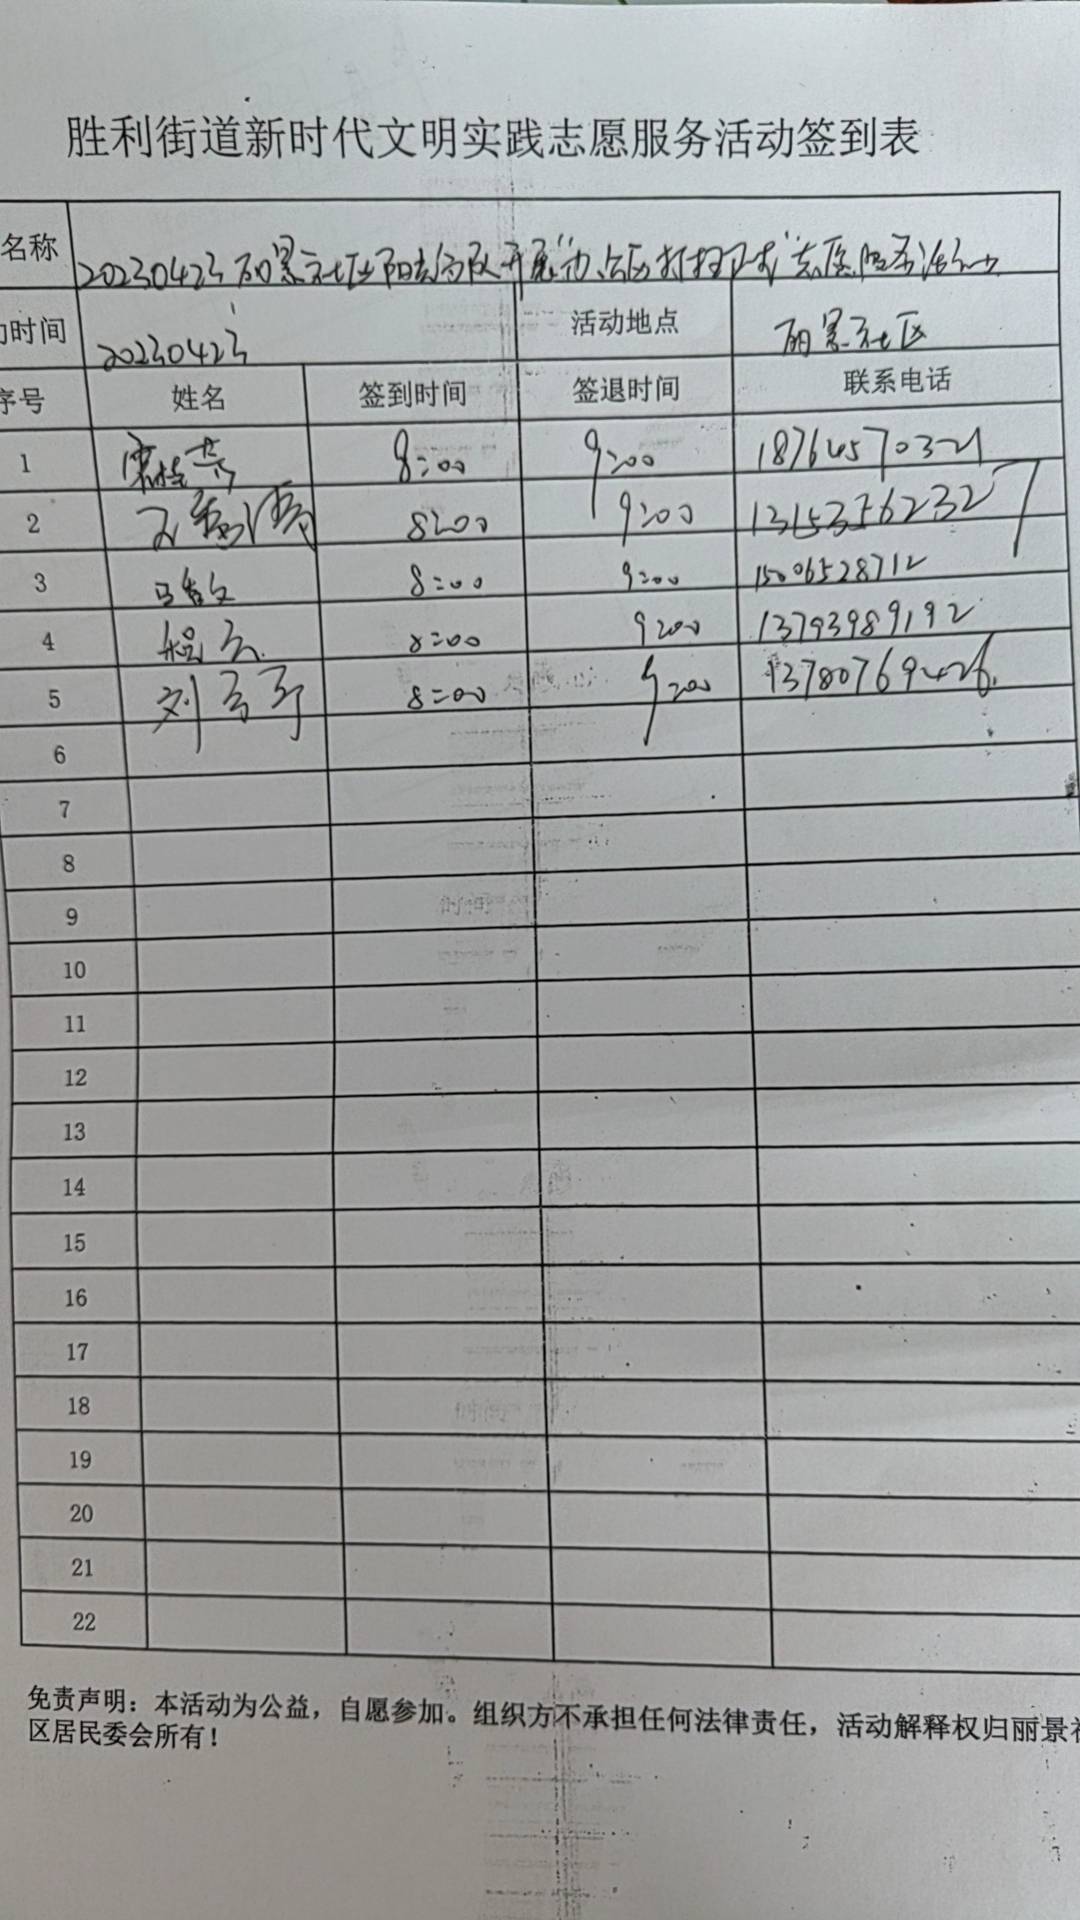 胜利街道新时代文明实践志愿服务活动签到表
名称 20230423丽景社区阳光分队开展"办公区打扫卫生"志愿服务活动
时间 20230423 活动地点 丽景社区
序号 姓名 签到时间 签退时间 联系电话
1 8:00 9:00 18764570321
2 8:00 9:00 13153562327
3 马敏 8:00 9:00 15006528712
4 8:00 9:00 13793989192
5 刘 8:00 9:00 13780769426
6
7
8
9
10
11
12
13
14
15
16
17
18
19
20
21
22
免责声明：本活动为公益，自愿参加。组织方不承担任何法律责任，活动解释权归丽景社
区居民委会所有！